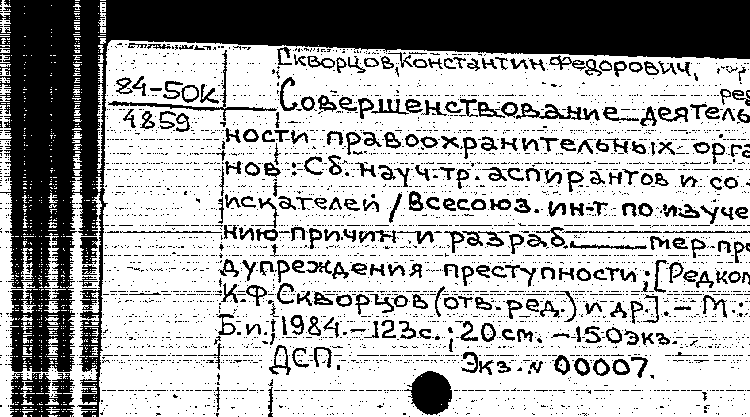 Скворцов, Константин Федорович,
84-50К
4859
Совершенствование деятель
ности правоохранительных орга
нов : Сб. науч. тр. аспирантов и со
искателей / Всесоюз. ин-т по изуче
нию причин и разраб. мер пре
дупреждения преступности; [Редкол
К.Ф. Скворцов (отв. ред.) и др.]. – М.:
Б.и., 1984. – 123 с.; 20 см. – 150 экз.
ДСП. Экз. № 00007.